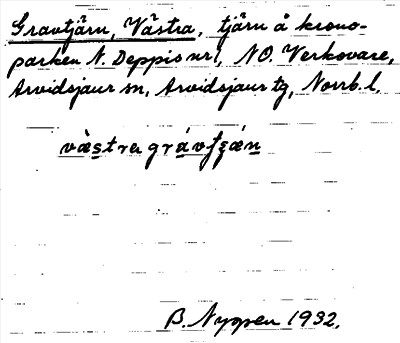 Gravtjärn, Västra, tjärn å krono-
parken N. Deppis nr 1, NO. Verkovare,
Arvidsjaur sn, Arvidsjaur tg, Norrb. l.
västra grávtʃǽn
B. Nyman 1932.